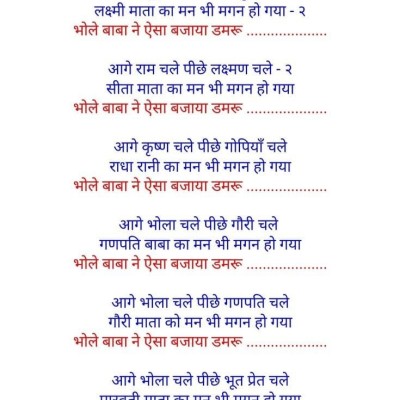 लक्ष्मी माता का मन भी मगन हो गया - २
भोले बाबा ने ऐसा बजाया डमरू ....................
आगे राम चले पीछे लक्ष्मण चले - २
सीता माता का मन भी मगन हो गया
भोले बाबा ने ऐसा बजाया डमरू ....................
आगे कृष्ण चले पीछे गोपियाँ चले
राधा रानी का मन भी मगन हो गया
भोले बाबा ने ऐसा बजाया डमरू ....................
आगे भोला चले पीछे गौरी चले
गणपति बाबा का मन भी मगन हो गया
भोले बाबा ने ऐसा बजाया डमरू ....................
आगे भोला चले पीछे गणपति चले
गौरी माता को मन भी मगन हो गया
भोले बाबा ने ऐसा बजाया डमरू ....................
आगे भोला चले पीछे भूत प्रेत चले
पारवती माता का मन भी मगन हो गया